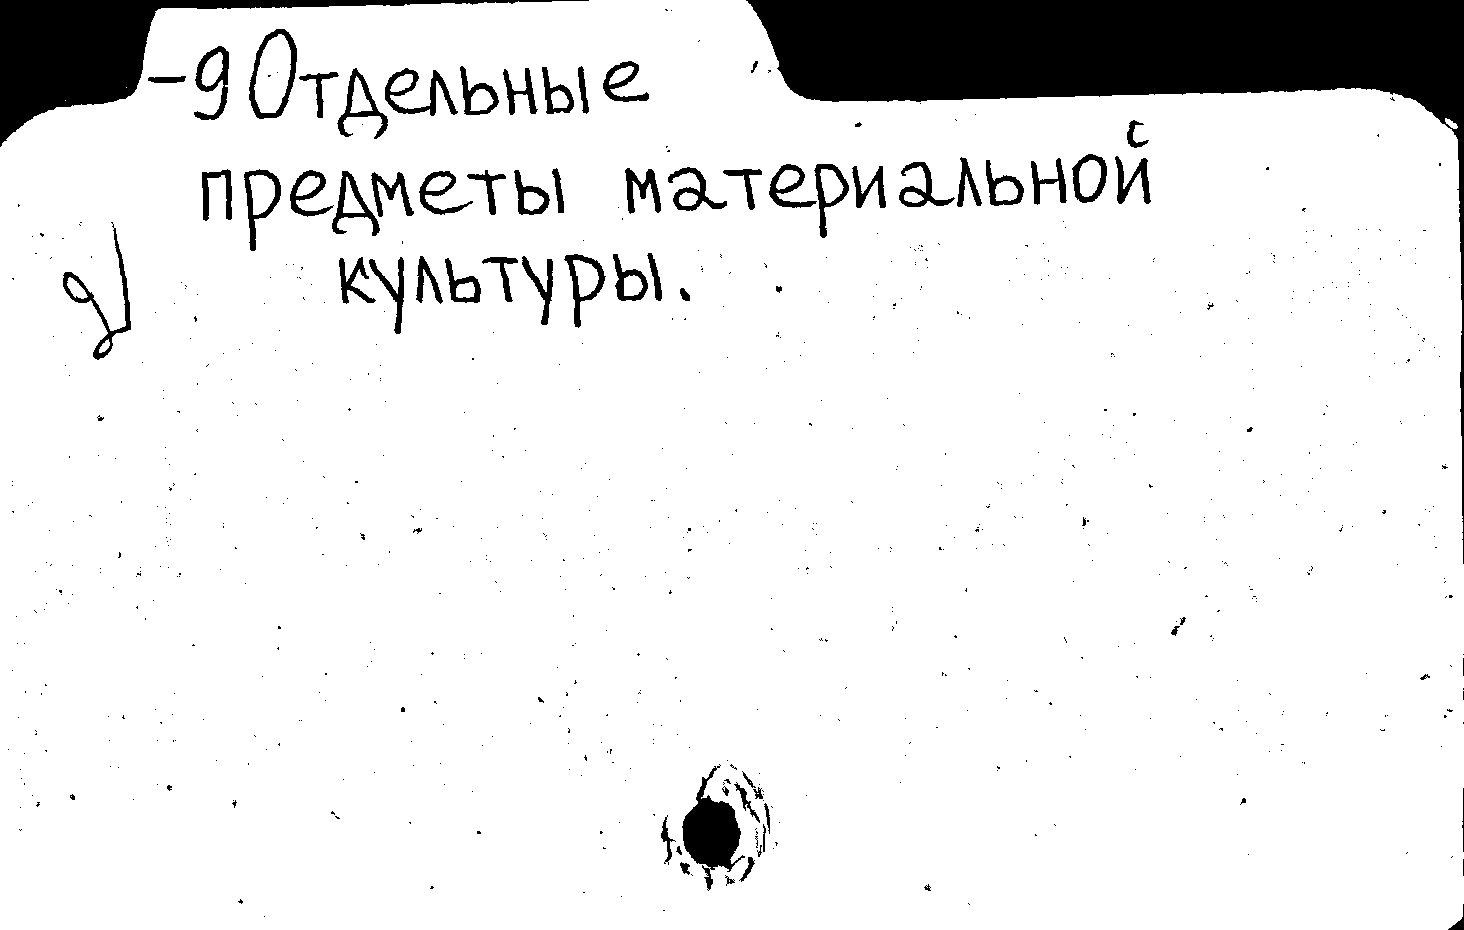 -9 Отдельные
предметы материальной
культуры.